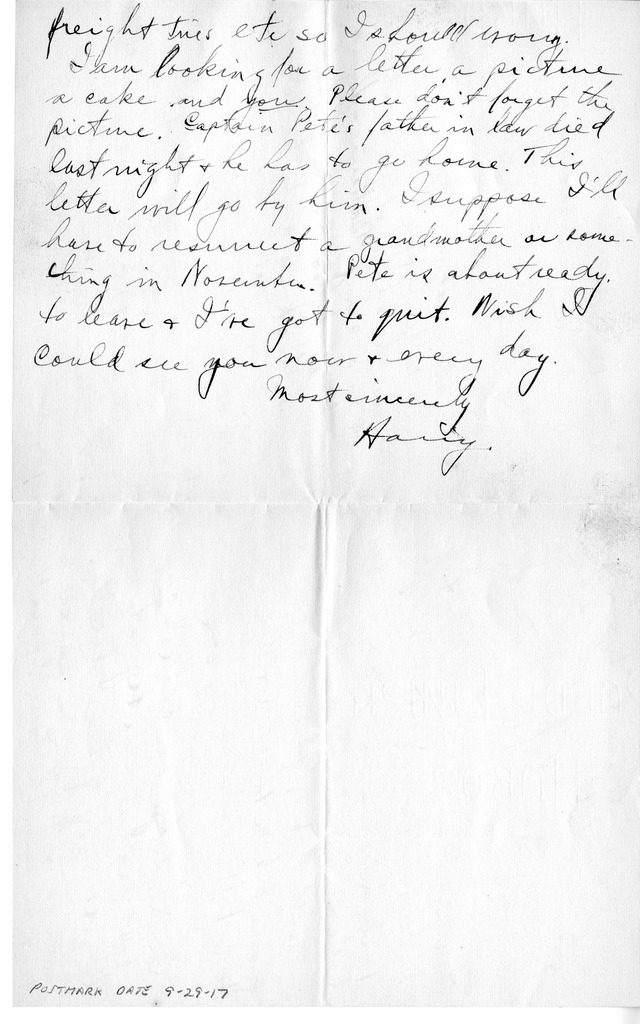 freight trips etc so I should worry.
I am looking for a letter, a picture
a cake and you. Please don't forget the
picture. Captain Pete's father in law died
last night & he has to go home. This
letter will go by him. I suppose I'll
have to resurrect a grandmother or some-
thing in November. Pete is about ready
to leave & I've got to quit. Wish I
could see you now & every day.
Most sincerely
Harry.
POSTMARK DATE 9-29-17